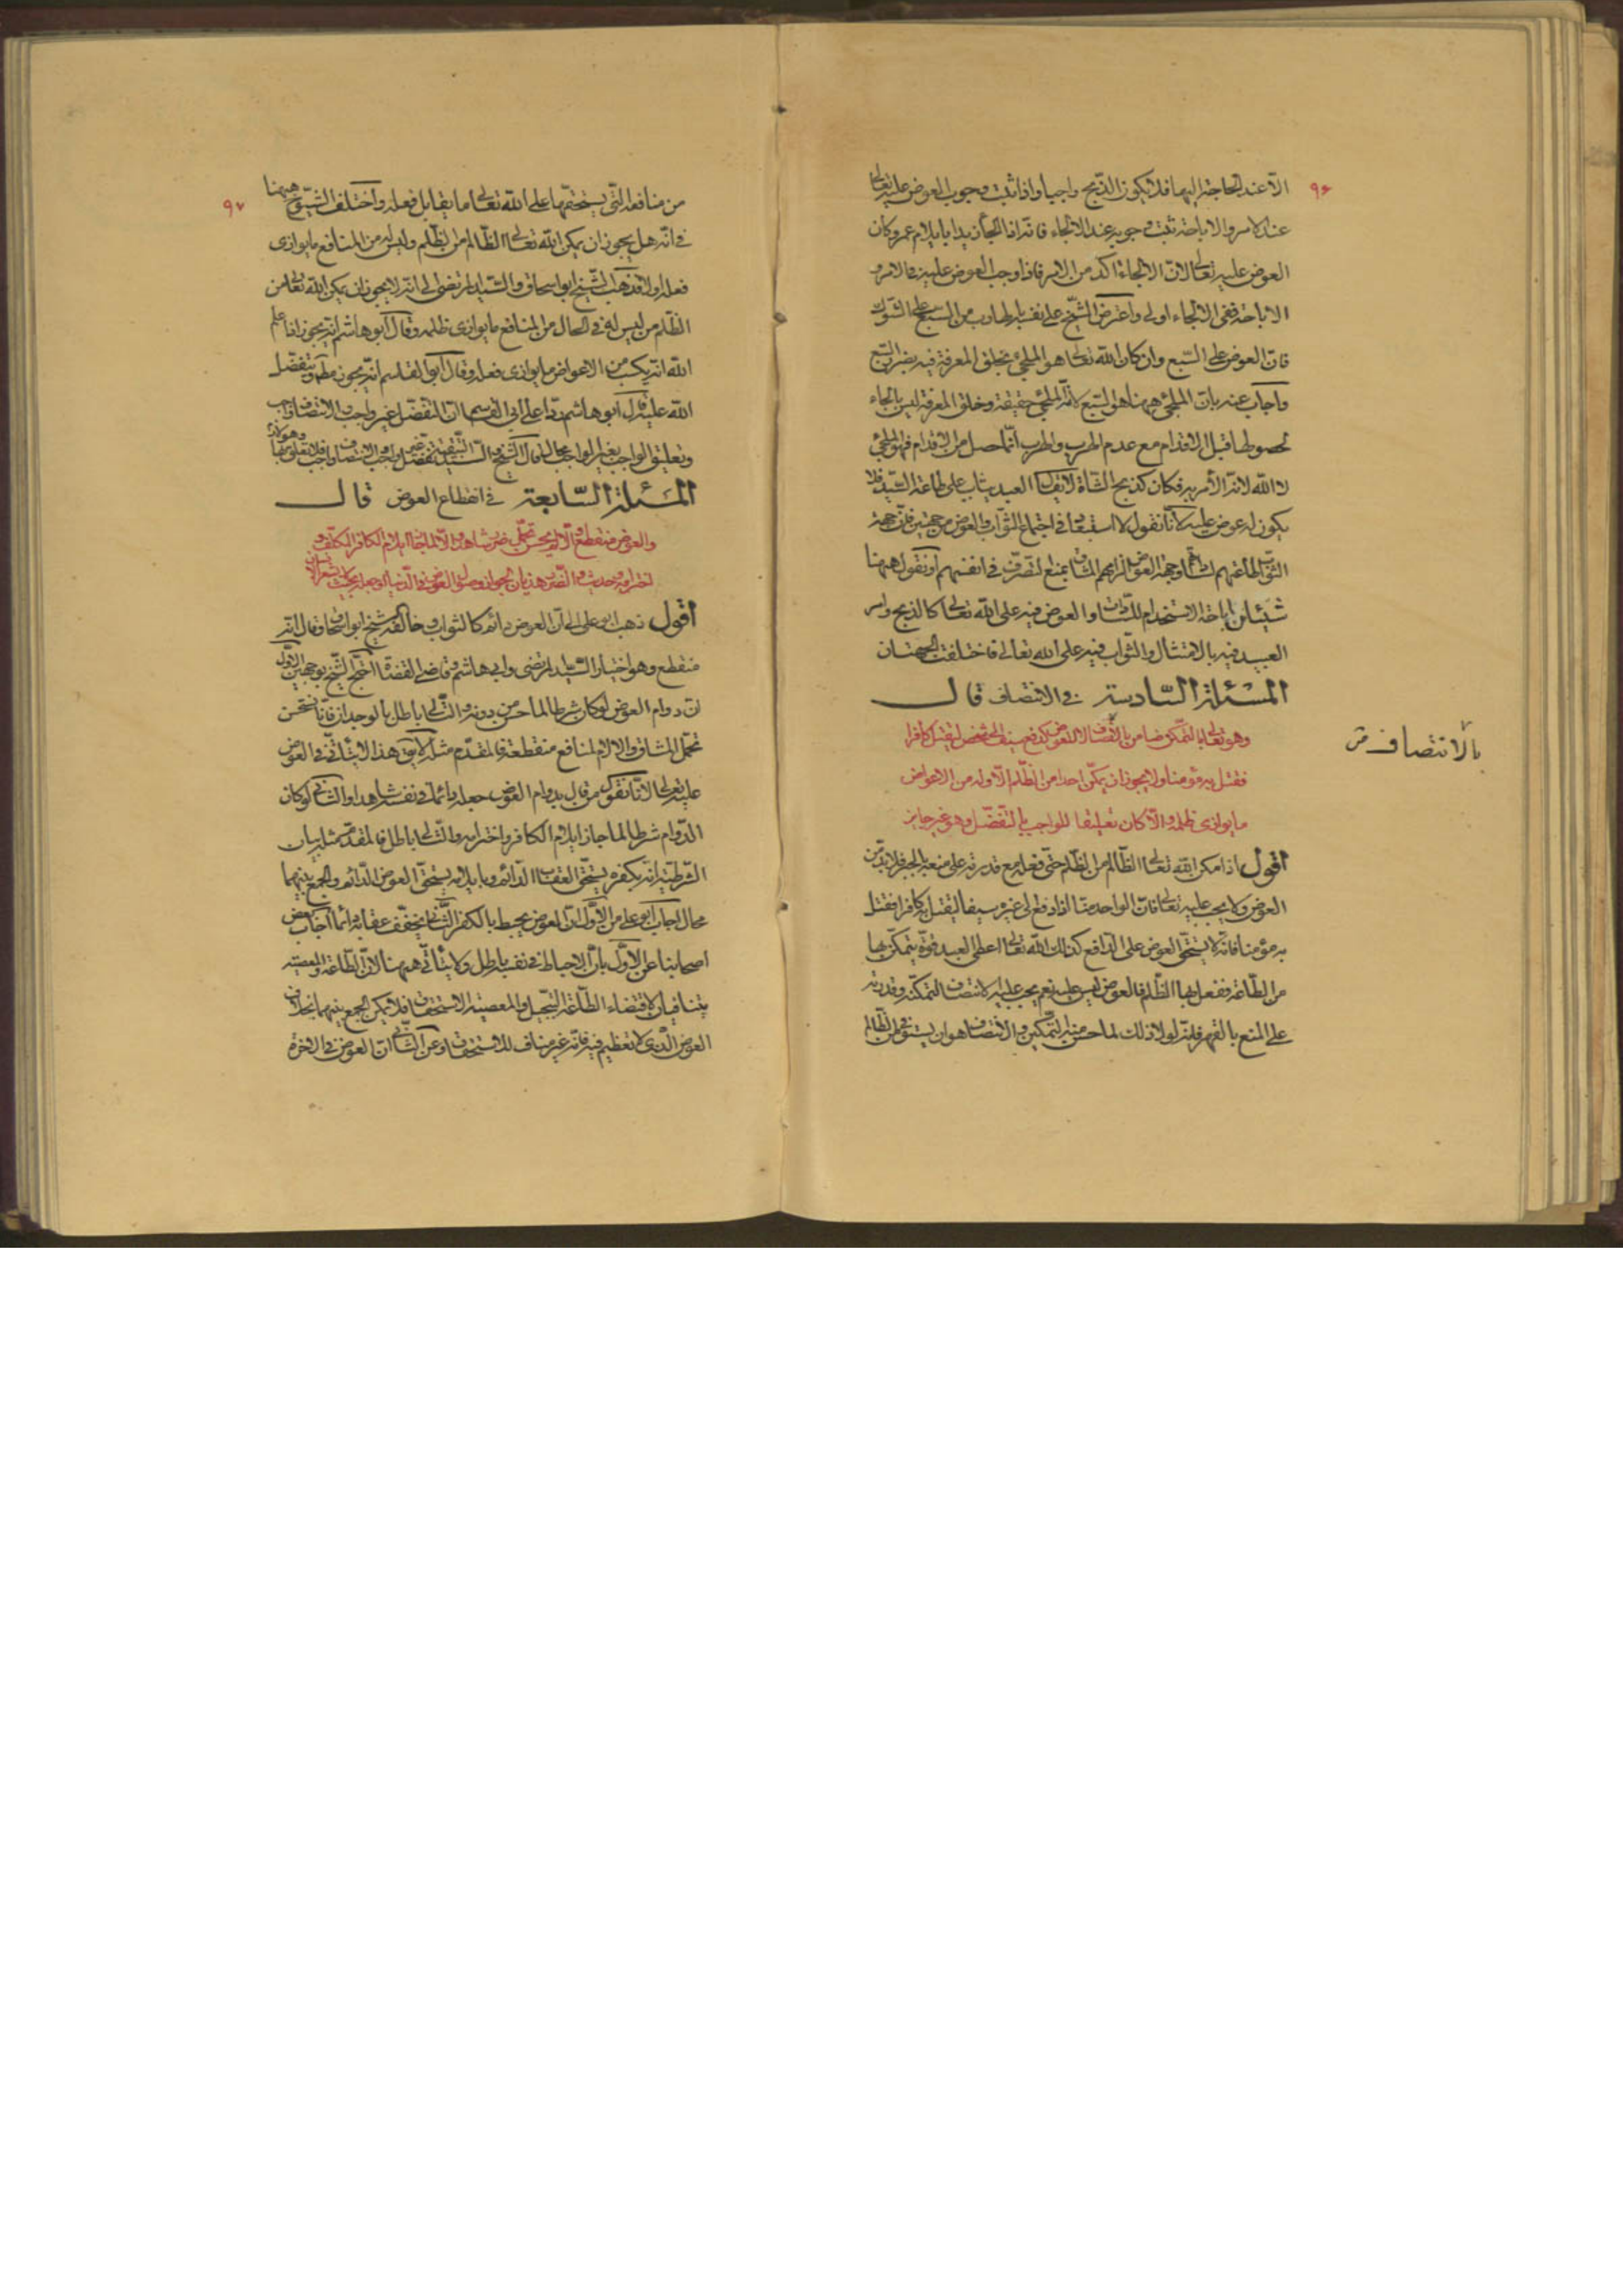 ٩۶
الّا عند الحاجة اليها فلا يكون الذّبح واجبا واذا ثبت وجوب العوض عليه تعالى
عند الامر والاباحة ثبت وجوبه عند الالجاء فانه اذا الجأ زيدا بايلام عمرو كان
العوض عليه تعالى لانّ الالجاء اكد من الامر فاذا وجب العوض عليه في الامر و
الاباحة ففي الالجاء اولى واعترض الشّيخ على نفسه بالهارب من السّبع على الشوك
فانّ العوض على السّبع وان كان الله تعالى هو الملجئ بخلق المعرفة فيه بضر السّبع
واجاب عنه بانّ الملجئ ههنا هو السّبع لانّه الملجئ حقيقة وخلق المعرفة ليس بالجاء
لحصولها قبل الاقدام مع عدم الهرب والهرب انّما حصل من الاقدام فهو الملجئ
لا الله لانّه الأمر به فكان كذبح الشاة لا يقال العبد يثاب على طاعة السّيد فلا
يكون له عوض عليه لانّا نقول لا استبعاد في اجتماع الثّواب والعوض من جهتين فانّ جهة
الثّواب طاعتهم وجهة العوض الزامهم المشاق بمنع التصرّف في انفسهم او نقول ههنا
شيئان اباحة الاستخدام للسّادات والعوض فيه على الله تعالى كالذبح وامر
العبيد فيه بالامتثال والثّواب فيه على الله تعالى فاختلفت الجهتان
المسئلة السّادسة في الانتصاف قال
وهو تعالى بالتمكّن ضامن بالانتصاف لا العوض كدفع سيف الى شخص ليقتل كافرا
فقتل به مؤمنا ولا يجوز ان يمكّن احدا من الظّلم الّا وله من الاعواض
ما يوازى ظلمه والّا كان تعليقا للواجب بالتفضّل وهو غير جايز
بالانتصاف
اقول اذا مكن الله تعالى الظّالم من الظّلم حتّى فعله مع قدرته على منعه بالجبر فلا بدّ من
العوض ولا يجب عليه تعالى فانّ الواحد منّا اذا دفع الى غيره سيفا ليقتل به كافرا فقتل
به مؤمنا فانّه لا يستحقّ العوض على الدّافع كذلك الله تعالى اعطى العبد قوّة يتمكّن بها
من الطّاعة ففعل بها الظّلم فالعوض ليس عليه نعم يجب عليه الانتصاف لتمكنه وقدرته
على المنع بالقهر فانّه لولا ذلك لما حسن منه التّمكين والانتصاف هو ان يستوفى من الظّالم
٩٧
من منافعه الّتي يستحقّها على الله تعالى ما يقابل فعله واختلف الشّيوخ ههنا
في انّه هل يجوز ان يمكن الله تعالى الظّالم من الظّلم وليس له من المنافع ما يوازى
فعله او لا فذهب الشّيخ ابو اسحاق والسّيد المرتضى الى انّه لا يجوز ان يمكن الله تعالى من
الظّلم من ليس له في الحال من المنافع ما يوازى ظلمه وقال ابو هاشم انّه يجوز اذا علم
الله انّه يكسب من الاعواض ما يوازى فعله وقال ابو القاسم انّه يجوز مطلقا ويتفضّل
الله عليه قال ابو هاشم ردّا على ابى القاسم انّ التفضّل غير واجب والانتصاف واجب
وتعليق الواجب بغير الواجب محال قال الشّيخ والسّيد التّبقية تفضّل غير واجب والانتصاف واجب فلا يتعلق بها
المسئلة السّابعة في انقطاع العوض قال
والعوض منقطع والّا لم يحسن تحمّل ضرر شاهدا والّا لما جاز ايلام الكافر المكلّف و
اخترامه وحديث الضّرر هذيان لجواز وصول العوض في الدّنيا او جعله بحيث لا يشعر
اقول ذهب ابو على الى انّ العوض دائم كالثواب وخالفه شيخ ابو اسحاق وقال انّه
منقطع وهو اختيار السّيد المرتضى وابى هاشم وقاضى القضاة احتجّ الشّيخ بوجهين الاوّل
انّ دوام العوض لو كان شرطا لما حسن من دونه والتّالى باطل بالوجدان فانّا نستحسن
تحمّل المشاق والالام لمنافع منقطعة فالمقدّم مثله لا يقال هذا لا يتأتّى في العوض
عليه تعالى لانّا نقول من قال بدوام العوض جعله دائما في نفسه شاهدا والثّانى لو كان
الدّوام شرطا لما جاز ايلام الكافر واخترامه والتّالى باطل فالمقدّم مثله بيان
الشّرطيّة انّه بكفره يستحقّ العقاب الدّائم وبايلامه يستحقّ العوض الدّائم والجمع بينهما
محال اجاب ابو على من الاوّل انّ العوض يحبط بالكفر الثّانى يخفّف عقابه دائما اجاب بعض
اصحابنا عن الاوّل بانّ الاحباط في نفسه باطل ولا يتأتّى ههنا لانّ الطّاعة والمعصية
يتنافيان لاقتضاء الطّاعة التبجيل والمعصية الاستخفاف فلا يمكن الجمع بينهما بخلاف
العوض الّذى لا تعظيم فيه فانّه غير مناف للاستخفاف وعن الثّانى انّ العوض في الاخرة